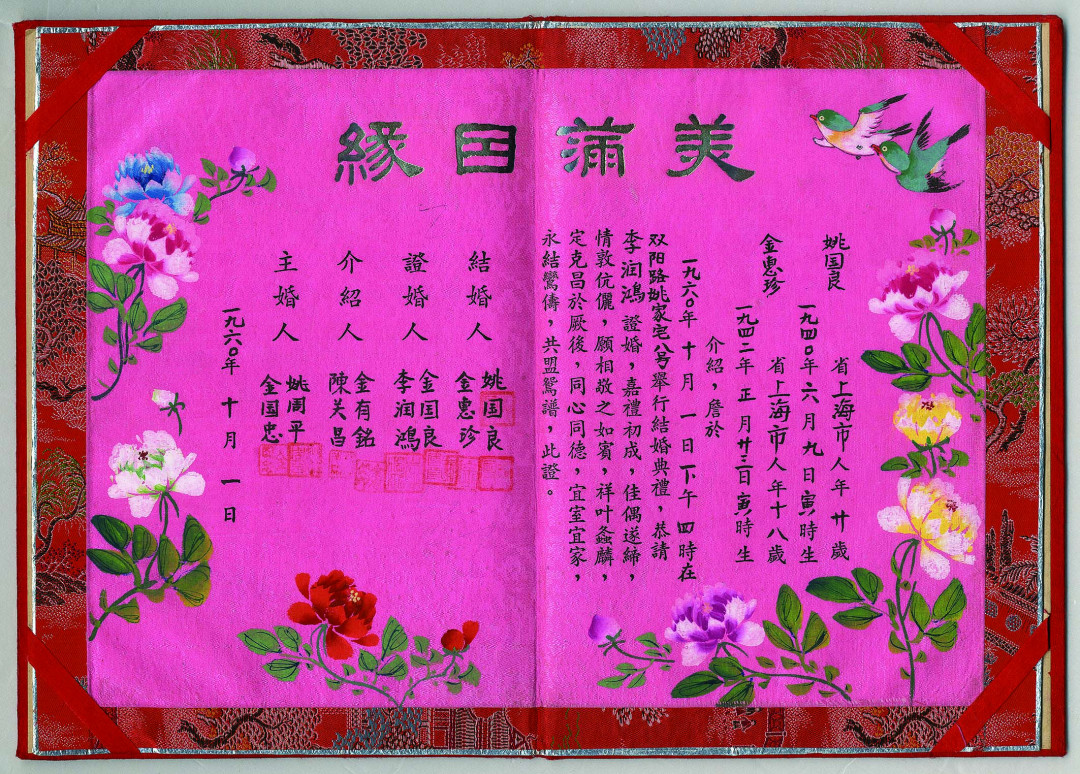 美滿囙緣
姚囯良 省上海市人年廿歲
一九四〇年六月九日寅時生
金惠珍 省上海市人年十八歲
一九四二年正月廿三日寅時生
介紹，詹於
一九六〇年十月一日下午四時在
双阳路姚家宅八号舉行結婚典禮，恭請
李润鴻證婚，嘉禮初成，佳偶遂締，
情敦伉儷，願相敬之如賓，祥叶螽麟，
定克昌於厥後，同心同德，宜室宜家，
永結鸞儔，共盟鴛譜，此證。
結婚人 姚囯良
金惠珍
證婚人 金囯良
李润鴻
介紹人 金有銘
陳关昌
主婚人 姚周平
金国忠
一九六〇年十月一日